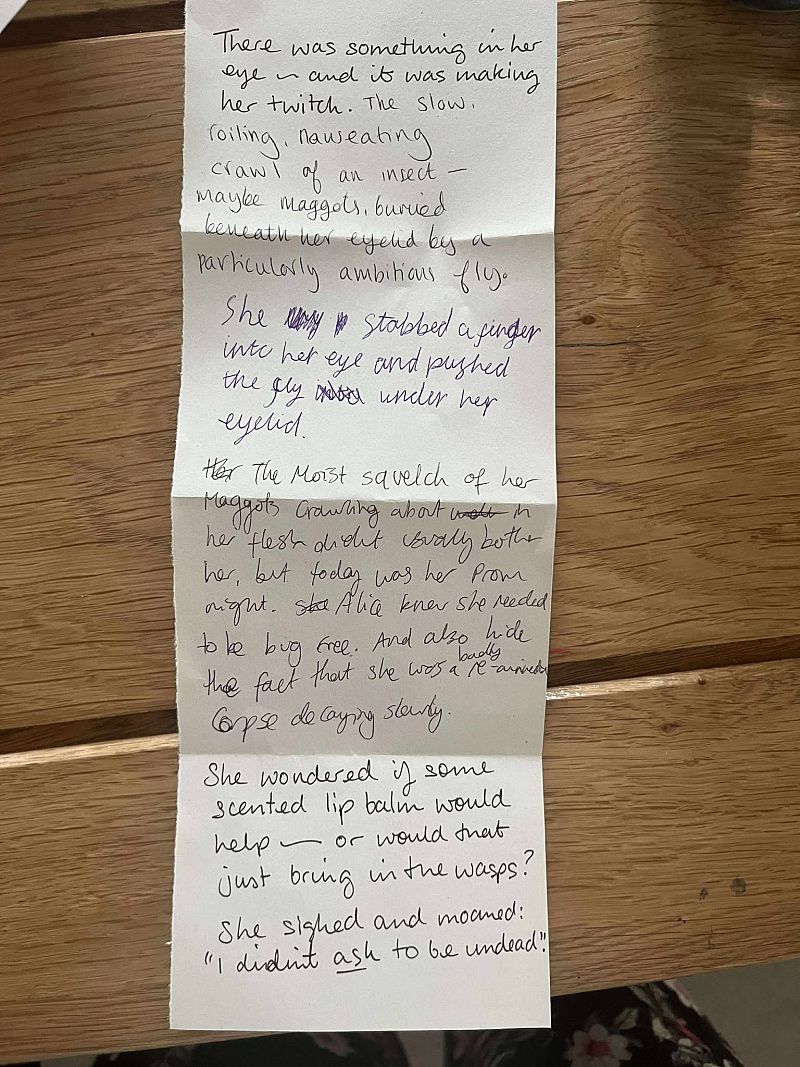 There was something in her
eye – and it was making
her twitch. The slow,
roiling, nauseating
crawl of an insect –
maybe maggots, buried
beneath her eyelid by a
particularly ambitious fly.
She stabbed a finger
into her eye and pushed
the fly under her
eyelid.
Her The Moist squelch of her
Maggots crawling about in
her flesh didnt usually bother
her, but today was her Prom
night. she Alice knew she needed
to be bug free. And also hide
the fact that she was a badly re-animated
Corpse decaying slowly.
She wondered if some
scented lip balm would
help – or would that
just bring in the wasps?
She sighed and moaned:
"I didn't ask to be undead."